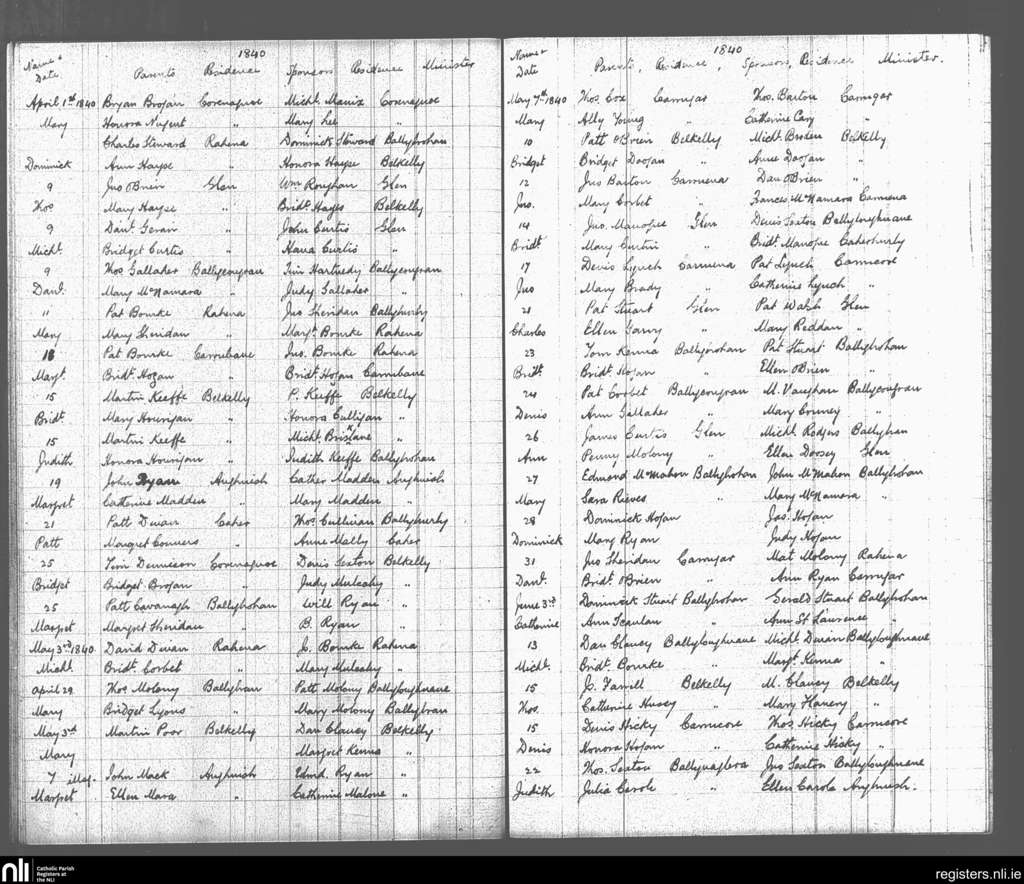 1840
Name &
Date Parents Residence Sponsors Residence Minister
April 1st 1840 Bryan Brogan Corenaguoe Michl. Maniz Corenaguoe
Mary Honora Nugent " Mary Lee "
Charles Steward Rahena Dominick Steward Ballybrohan
Dominick Ann Hayse " Honora Hayse Belkelly
9 Jno OBrien Glen Wm Roughan Glen
Thos Mary Hayse " Bridt. Hayes Belkelly
9 Danl. Geran " John Curtis Glen
Michl. Bridget Curtis " Hana Curtis "
9 Thos Gallaher Ballycougran Tim Hartnedy Ballycougran
Danl. Mary McNamara " Judy Gallaher "
11 Pat Bourke Rahena Jno Sheridan Ballyhurly
Mary Mary Sheridan " Margt. Bourke Rahena
18 Pat Bourke Carrubane Jno. Bourke Rahena
Margt. Bridt. Hogan " Bridt Hogan Carrubane
15 Martin Keeffe Belkelly P. Keeffe Belkelly
Bridt. Mary Hourigan " Honora Culligan "
15 Martin Keeffe " Michl.
Judith Honora Hourigan " Judith Keeffe Ballybrohan
19 John Ryan Aughnish Cather Madden Aughnish
Margret Catherine Madden " Mary Madden "
21 Patt Dwan Caher Thos. Cullinan Ballyhurly
Patt Margret Conners " Anne Mally Caher
25 Tim Dennison Corenaguoe Denis Sexton Belkelly
Bridget Bridget Brogan " Judy Mulcahy "
25 Patt Cavanagh Ballybrohan Will Ryan "
Margret Margret Sheridan " B. Ryan "
May 3rd 1840 David Dwan Rahena J. Bourke Rahena
Michl. Bridt. Corbet " Mary Mulcahy "
April 29 Thos Molony Ballybran Patt Molony Ballyloughnane
Mary Bridget Lyons " Mary Molony Ballybran
May 3rd Martin Poor Belkelly Dan Clancy Belkelly
Mary Margret Kenna "
7 illeg. John Mack Aughnish Edmd. Ryan "
Margret Ellen Mara " Catherine Malone "
1840
Name &
Date Parents, Residence, Sponsors, Residence Minister.
May 7th 1840 Thos. Cox Carrugar Thos. Barton Carrugar
Mary Ally Young " Catherine Cary "
10 Patt OBrien Belkelly Michl. Broden Belkelly
Bridget Bridget Doogan " Anne Doogan "
12 Jno Barton Carruena Dan OBrien "
Jno. Mary Corbet " Frances McNamara Carruena
14 Jno. Manogue Glen Denis Sexton Ballyloughnane
Bridt Mary Curtin " Bridt. Manogue Caherhurly
17 Denis Lynch Carruena Pat Lynch Carrucore
Jno Mary Brady " Catherine Lynch "
21 Pat Stuart Glen Pat Walsh Glen
Charles Ellen Garry " Mary Reddan "
23 Tom Kenna Ballybrohan Pat Stuart Ballybrohan
Bridt Bridt Hogan " Ellen OBrien "
24 Pat Corbet Ballycougran M. Vaughan Ballycougran
Denis Ann Gallaher " Mary "
26 James Curtis Glen Michl. Rodgers Ballybran
Ann Penny Molony " Ellen Dorsey Glen
27 Edmond McMahon Ballybrohan John McMahon Ballybrohan
Mary Sara Rieves " Mary McNamara "
28 Dominick Hogan Jas. Hogan
Dominick Mary Ryan Judy Hogan
31 Jno Sheridan Carrugar Mat Molony Rahena
Danl. Bridt. OBrien " Ann Ryan Carrugar
June 3rd Dominick Stuart Ballybrohan Gerald Stuart Ballybrohan
Catherine Ann Scanlan " Ann St Laurence "
13 Dan Clancy Ballyloughnane Michl. Dwan Ballyloughnane
Michl. Bridt Bourke " Margt. Kenna "
15 J. Farrell Belkelly M. Clancy Belkelly
Thos. Catherine Hussy " Mary Flanery "
15 Denis Hicky Carrucore Thos Hicky Carrucore
Denis Honora Hogan " Catherine Hicky "
22 Thos. Sexton Ballynaglera Jno Sexton Ballyloughnane
Judith Julia Carole " Ellen Carole Aughnish.
nli Catholic Parish
Registers at
the NLI
registers.nli.ie